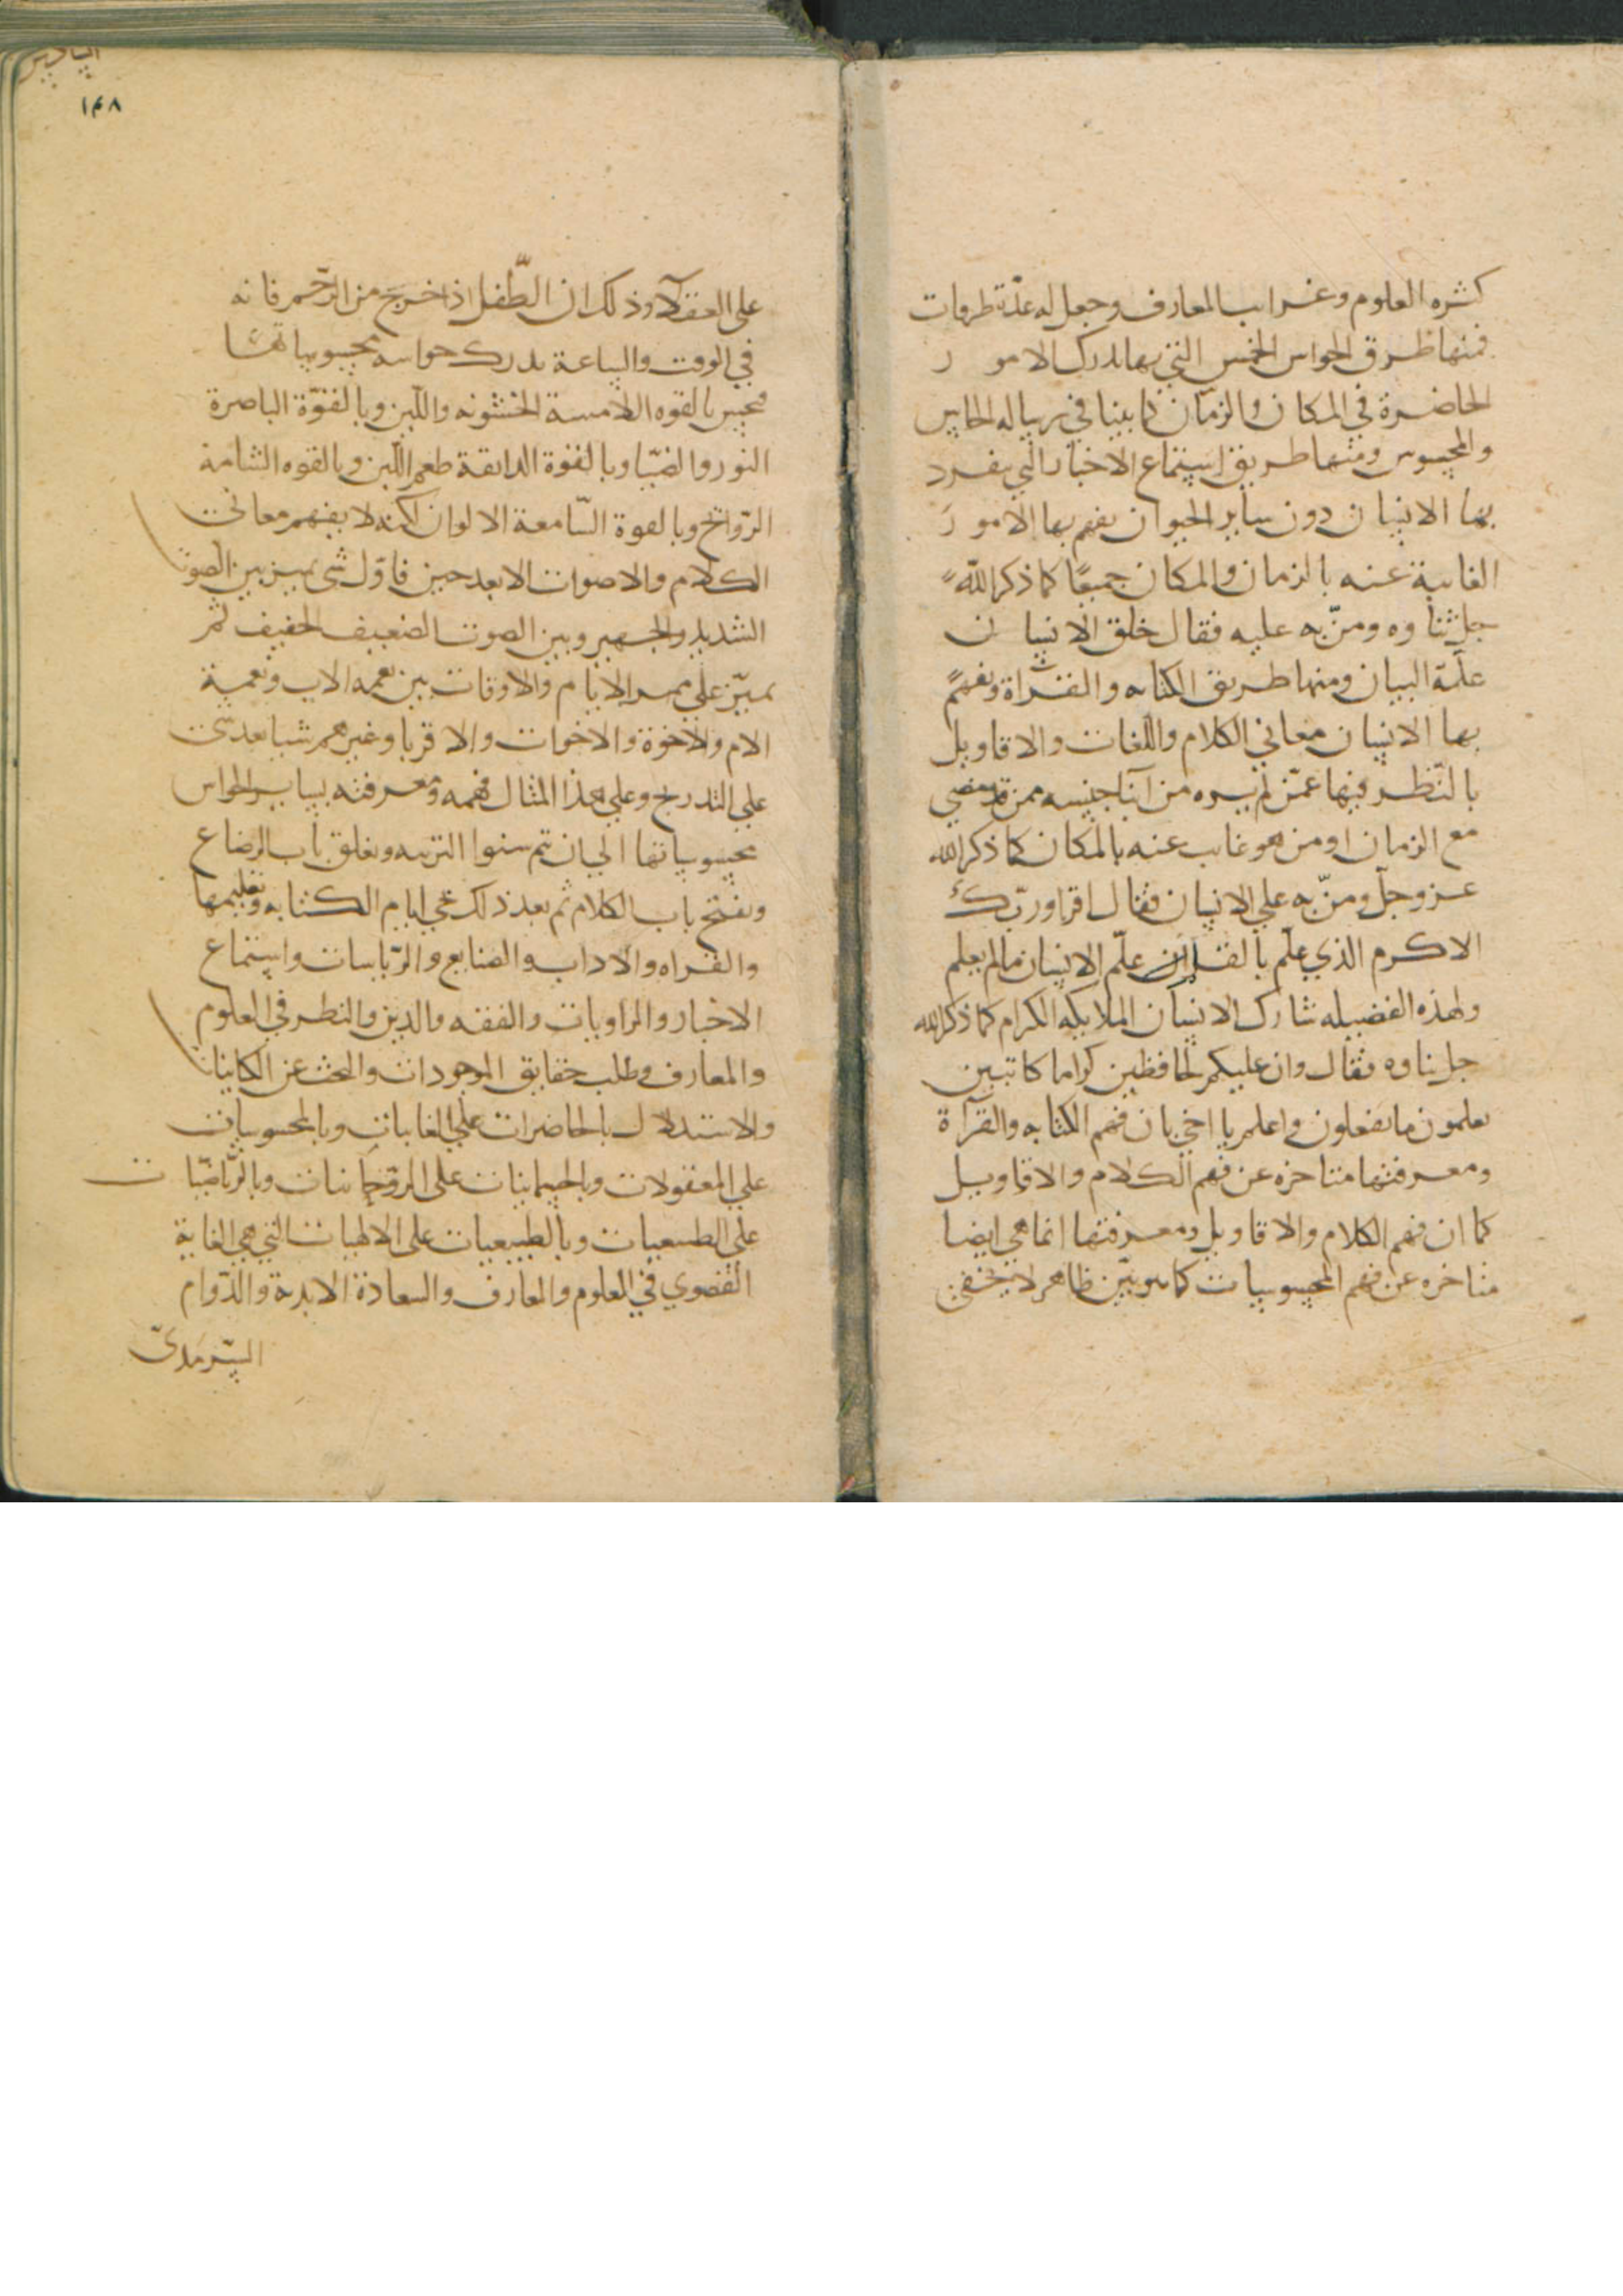 كثره العلوم وغرايب المعارف وجعل له عدّة طرقات
فمنها طرق الحواس الخمس التي بها يدرك الامور
الحاضرة في المكان والزمان كما بينا في رسالة الحاس
والمحسوس ومنها طريق استماع الاخبار التي ينفرد
بها الانسان دون ساير الحيوان يفهم بها الامور
الغايبة عنه بالزمان والمكان جميعًا كما ذكر الله
جل ثناوه ومنّ به عليه فقال خلق الانسان
علّمة البيان ومنها طريق الكتابه والقراة ويفهم
بها الانسان معاني الكلام واللّغات والاقاويل
بالنّظر فيها عمّن لم يره من آبنا جنسه ممن قد مضي
مع الزمان او من هو غايب عنه بالمكان كما ذكر الله
عز وجلّ ومنّ به علي الانسان فقال اقرا وربّك
الاكرم الذي علّم بالقلم علّم الانسان مالم يعلم
وبهذه الفضيله شارك الانسان الملايكه الكرام كما ذكر الله
جل ثناوه فقال وان عليكم لحافظين كراما كاتبين
يعلمون ما تفعلون واعلم يا اخي بان فهم الكتابه والقرآة
ومعرفتها متاخره عن فهم الكلام والاقاويل
كما ان فهم الكلام والاقاويل ومعرفتها انما هي ايضا
متاخره عن فهم المحسوسات كما هو بيّن ظاهر لا يخفى
١٤٨
علي العقلآ وذلك ان الطّفل اذا خرج من الرّحم فانه
في الوقت والساعة يدرك حواسه محسوساتها
فيحس بالقوه اللامسة الخشونه واللّين وبالقوّة الباصرة
النور والضيّا وبالقوة الذايقة طعم اللّبن وبالقوه الشامة
الرّوايح وبالقوة السّامعة الالوان لكنه لا يفهم معاني
الكلام والاصوات الا بعد حين فاوّل شي يميز بين الصوت
الشديد والجهير وبين الصوت الضعيف الخفيف ثم
يميّز علي ممر الايام والاوقات بين نغمه الاب ونغمة
الام والاخوة والاخوات والاقربا وغيرهم شيا بعد شي
علي التدريج وعلي هذا المثال فهمه ومعرفته بساير الحواس
محسوساتها الي ان يتم سنوا التربيه ويغلق باب الرضاع
ويفتح باب الكلام ثم بعد ذلك تجي ايام الكتابه وتعليمها
والقراه والاداب والصنايع والرّياسات واستماع
الاخبار والراويات والفقه والدين والنظر في العلوم
والمعارف وطلب حقايق الموجودات والبحث عن الكاينات
والاستدلال بالحاضرات علي الغايبات وبالمحسوسات
علي المعقولات وبالجسمانيات علي الروحانيات وبالرّياضيّات
علي الطبيعيات وبالطبيعيات علي الالهيات التي هي الغاية
القصوي في العلوم والمعارف والسعادة الابدية والدّوام
السّرمديّ